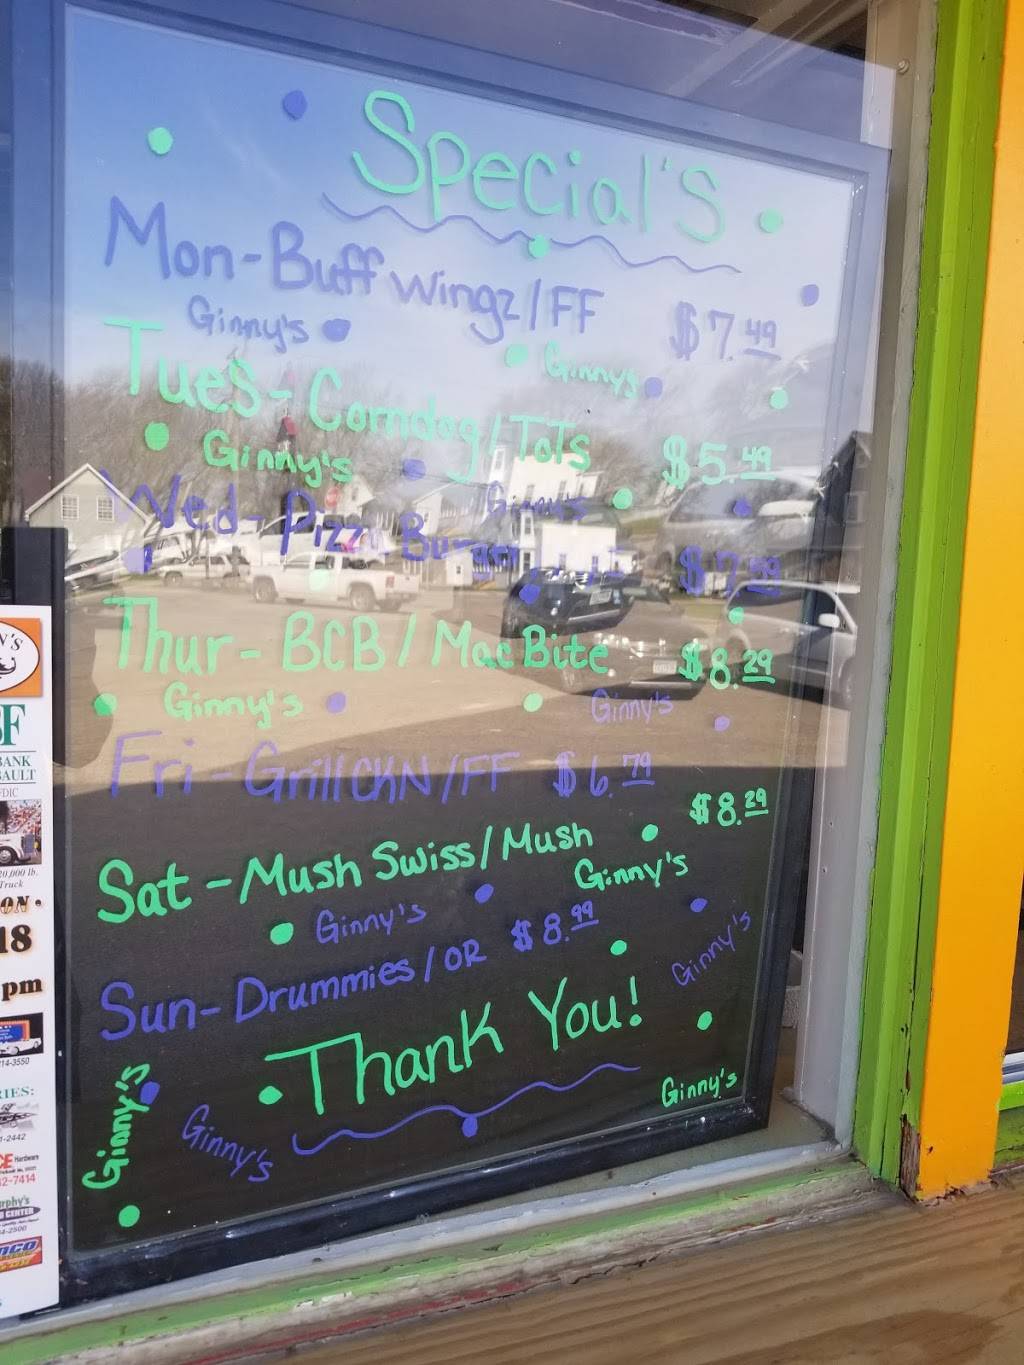 Special's
Mon-Buff Wingz/FF $7.49
Ginny's
Ginnys
Tues-Corndog/ToTs $5.49
Ginny's
Ginny's
Wed-Pizza Burger
Thur-BCB/Mac Bite $8.29
Ginny's
Ginny's
Fri-Grill CKN/FF $6.79
Sat-Mush Swiss/Mush $8.29
Ginny's
Ginny's
Sun-Drummies/OR $8.99
Ginny's
Thank You!
Ginny's
Ginny's
Ginny's
N'S
BF
BANK
BAULT
FDIC
20,000 lb.
Truck
ON •
18
pm
14-3550
IES:
1-2442
CE Hardware
32-7414
rphy's
CENTER
4-2500
NCO